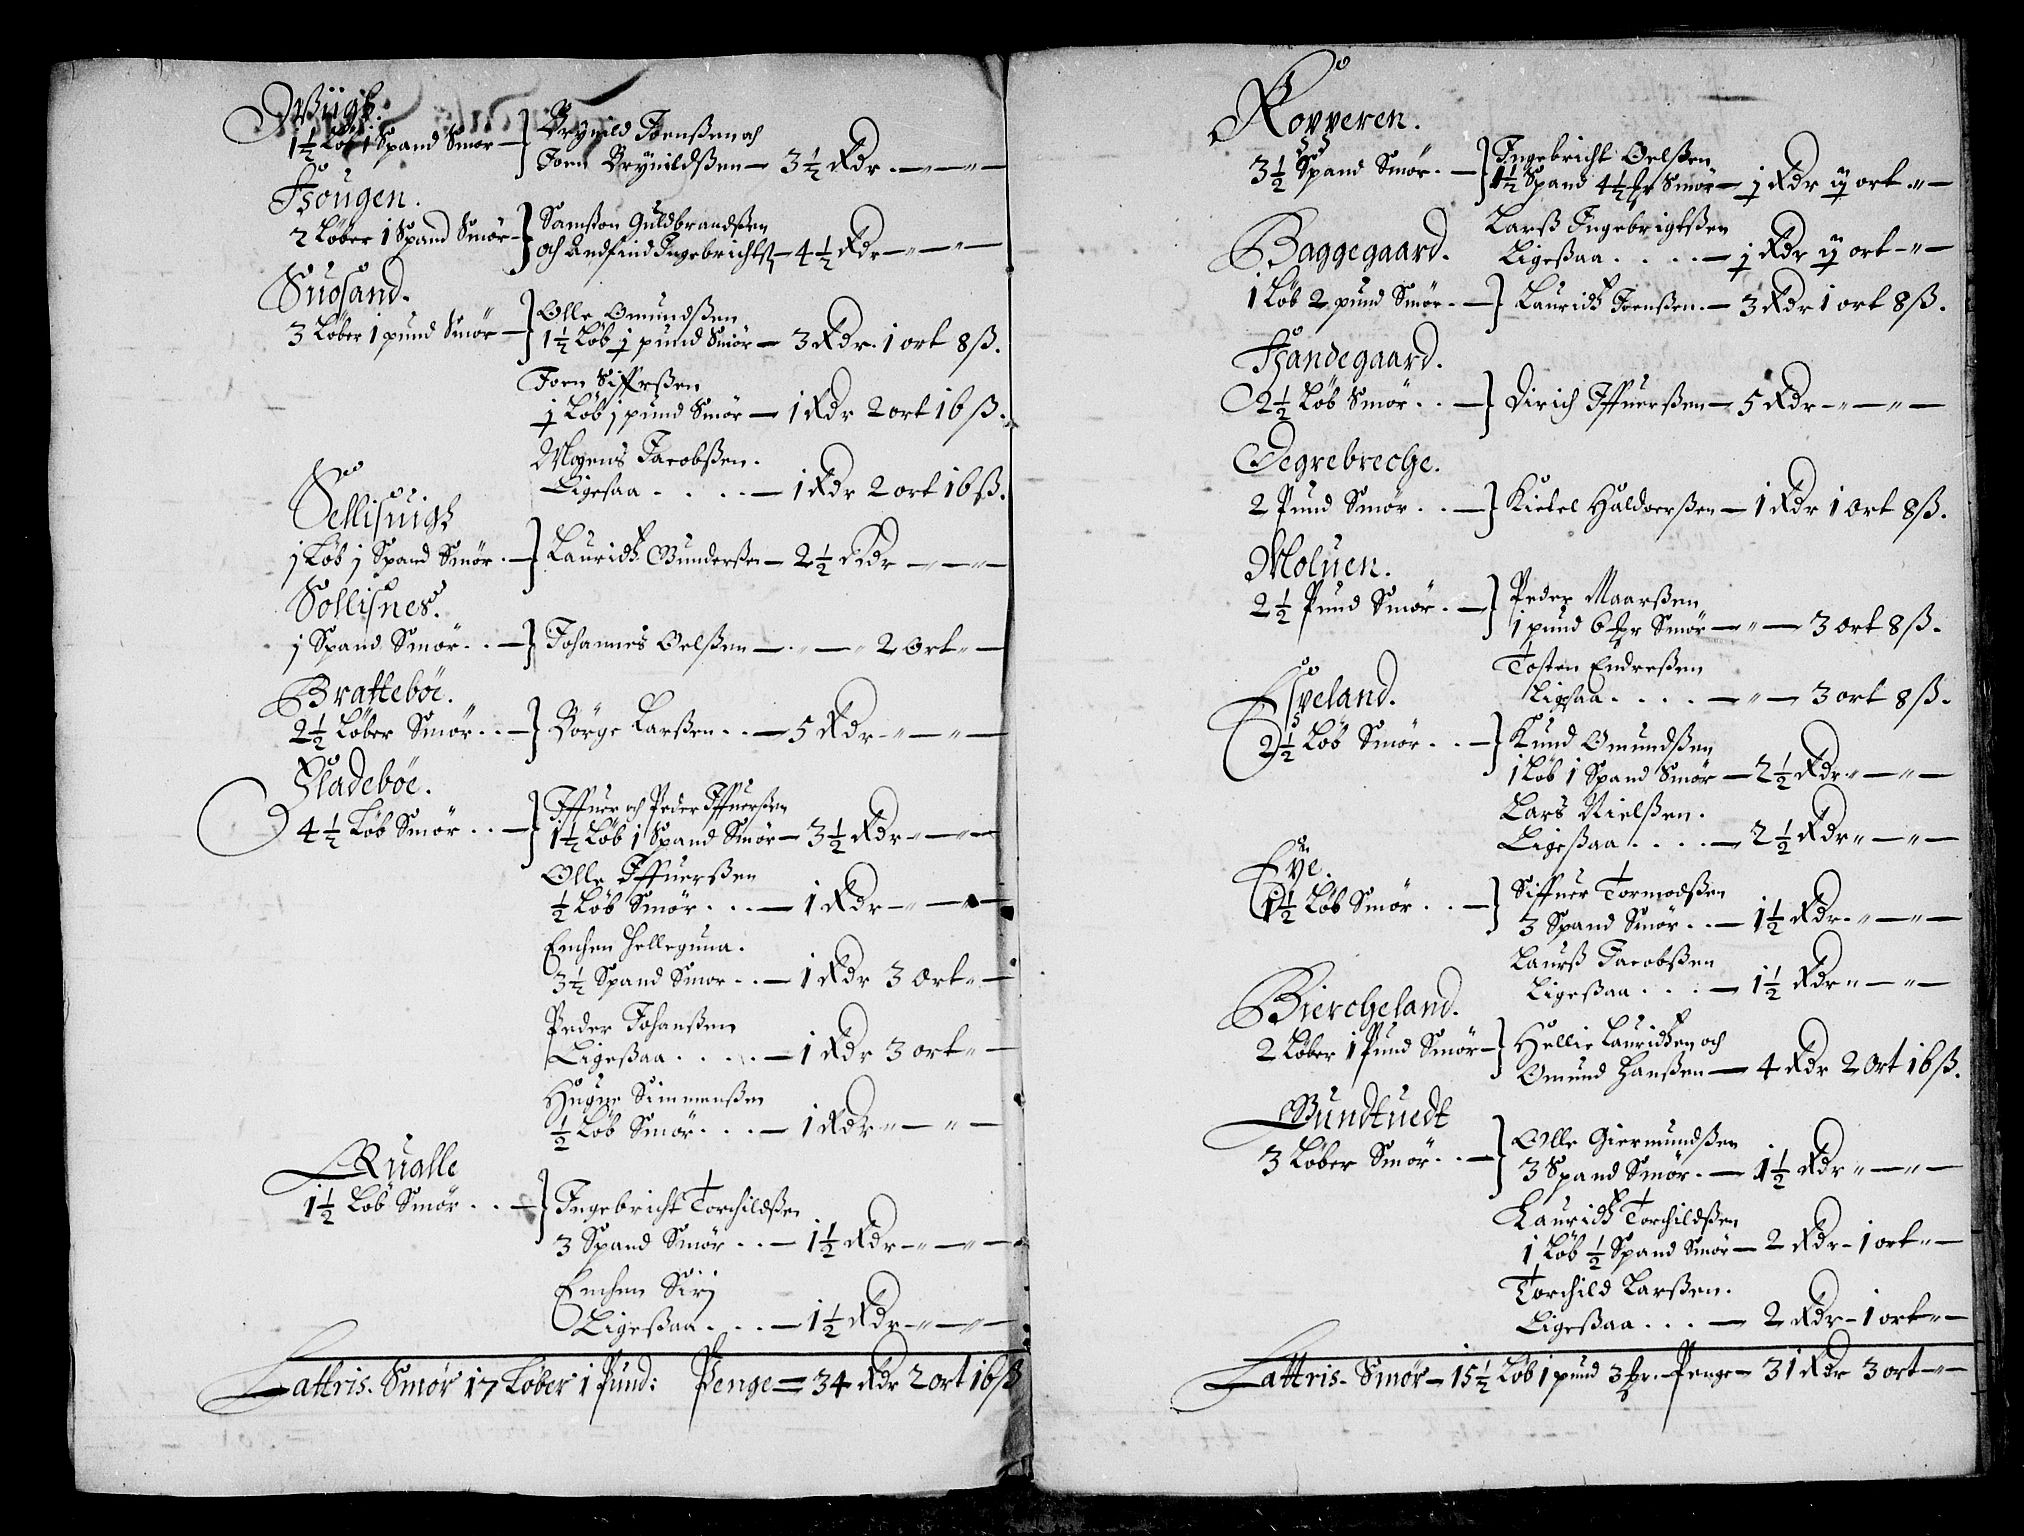 Wiigh.
1½ Løb 1 Spand Smør — Brynild Joenßen och
Joen Brynildßen — 3½ Rdr. — " —
Hougen.
2 Løber 1 Spand Smør — Samßon Guldbrandßen
och Andfind Ingebrichtß — 4½ Rdr — " —
Suosand.
3 Løber 1 pund Smør — Olle Omundßen
1½ Løb j pund Smør — 3 Rdr. 1 ort 8 ß.
Joen Siffrßen
j Løb j pund Smør — 1 Rdr 2 ort 16 ß.
Mogens Jacobßen.
Ligesaa . . . . — 1 Rdr 2 ort 16 ß.
Sellisuigh
j Løb j Spand Smør . — Lauridtz Gunderßen — 2½ Rdr — " —
Sollisnes.
j Spand Smør . . — Johannes Oelßen — " — " 2 ort " —
Brattebøe.
2½ Løber Smør . . — Børge Larßen . . — 5 Rdr — " —
Fladebøe.
4½ Løb Smør . . — Iffuer och Peder Iffuerßen
1½ Løb 1 Spand Smør — 3½ Rdr — " —
Olle Iffuerßen
½ Løb Smør . . . — 1 Rdr — " —
Enchen Helleguna.
3½ Spand Smør . . — 1 Rdr 3 Ort " —
Peder Johanßen
Ligeßaa . . . . — 1 Rdr 3 ort " —
Simmenßen
½ Løb Smør . . . — 1 Rdr " — " —
Rualle
1½ Løb Smør . . — Ingebricht Torchildßen
3 Spand Smør . . — 1½ Rdr — " —
Enchen Sirj
Ligeßaa . . . — 1½ Rdr — " —
Lattris. Smør 17 Løber 1 Pund: Penge = 34 Rdr 2 ort 16 ß
Ropperen.
3½ Spand Smør . — Ingebricht Oelßen
1½ Spand 4½ Smør — j Rdr ij ort " —
Larß Ingebrigtßen
Ligeßaa . . . . — j Rdr ij ort — " —
Baggegaard.
1 Løb 2 pund Smør . — Lauridtz Joenßen . — 3 Rdr 1 ort 8 ß.
Handegaard.
2½ Løb Smør . . — Dirich Iffuerßen — 5 Rdr — " —
Degrebreche.
2 Pund Smør . . — Kietel Haldoerßen — 1 Rdr 1 Ort 8 ß.
Moluen.
2½ Pund Smør . — Peder Maarßen
1 pund 6 Smør — " — 3 ort 8 ß.
Tosten Endreßen
Ligesaa . . . . — " — 3 ort 8 ß.
Espeland.
2½ Løb Smør . . — Knud Omundßen
1 Løb 1 Spand Smør — 2½ Rdr " — " —
Lars Nielßen.
Ligeßaa . . . . — 2½ Rdr " — " —
Eye.
1½ Løb Smør . . — Siffuer Tormodßen
3 Spand Smør . . — 1½ Rdr . " — " —
Laurß Jacobßen
Ligeßaa . . . — 1½ Rdr " — " —
Biercheland.
2 Løber 1 Pund Smør — Hellie Lauridtzen och
Omund Hanßen — 4 Rdr 2 Ort 16 ß.
Gundtuedt
3 Løber Smør . . — Olle Giermundßen
3 Spand Smør . — 1½ Rdr " — " —
Lauridtz Torchildßen
1 Løb ½ Spand Smør — 2 Rdr — 1 ort " —
Torchild Larßen.
Ligeßaa . . . — 2 Rdr — 1 ort " —
Lattris. Smør — 15½ Løb 1 pund 3 . Penge — 31 Rdr 3 ort — " —